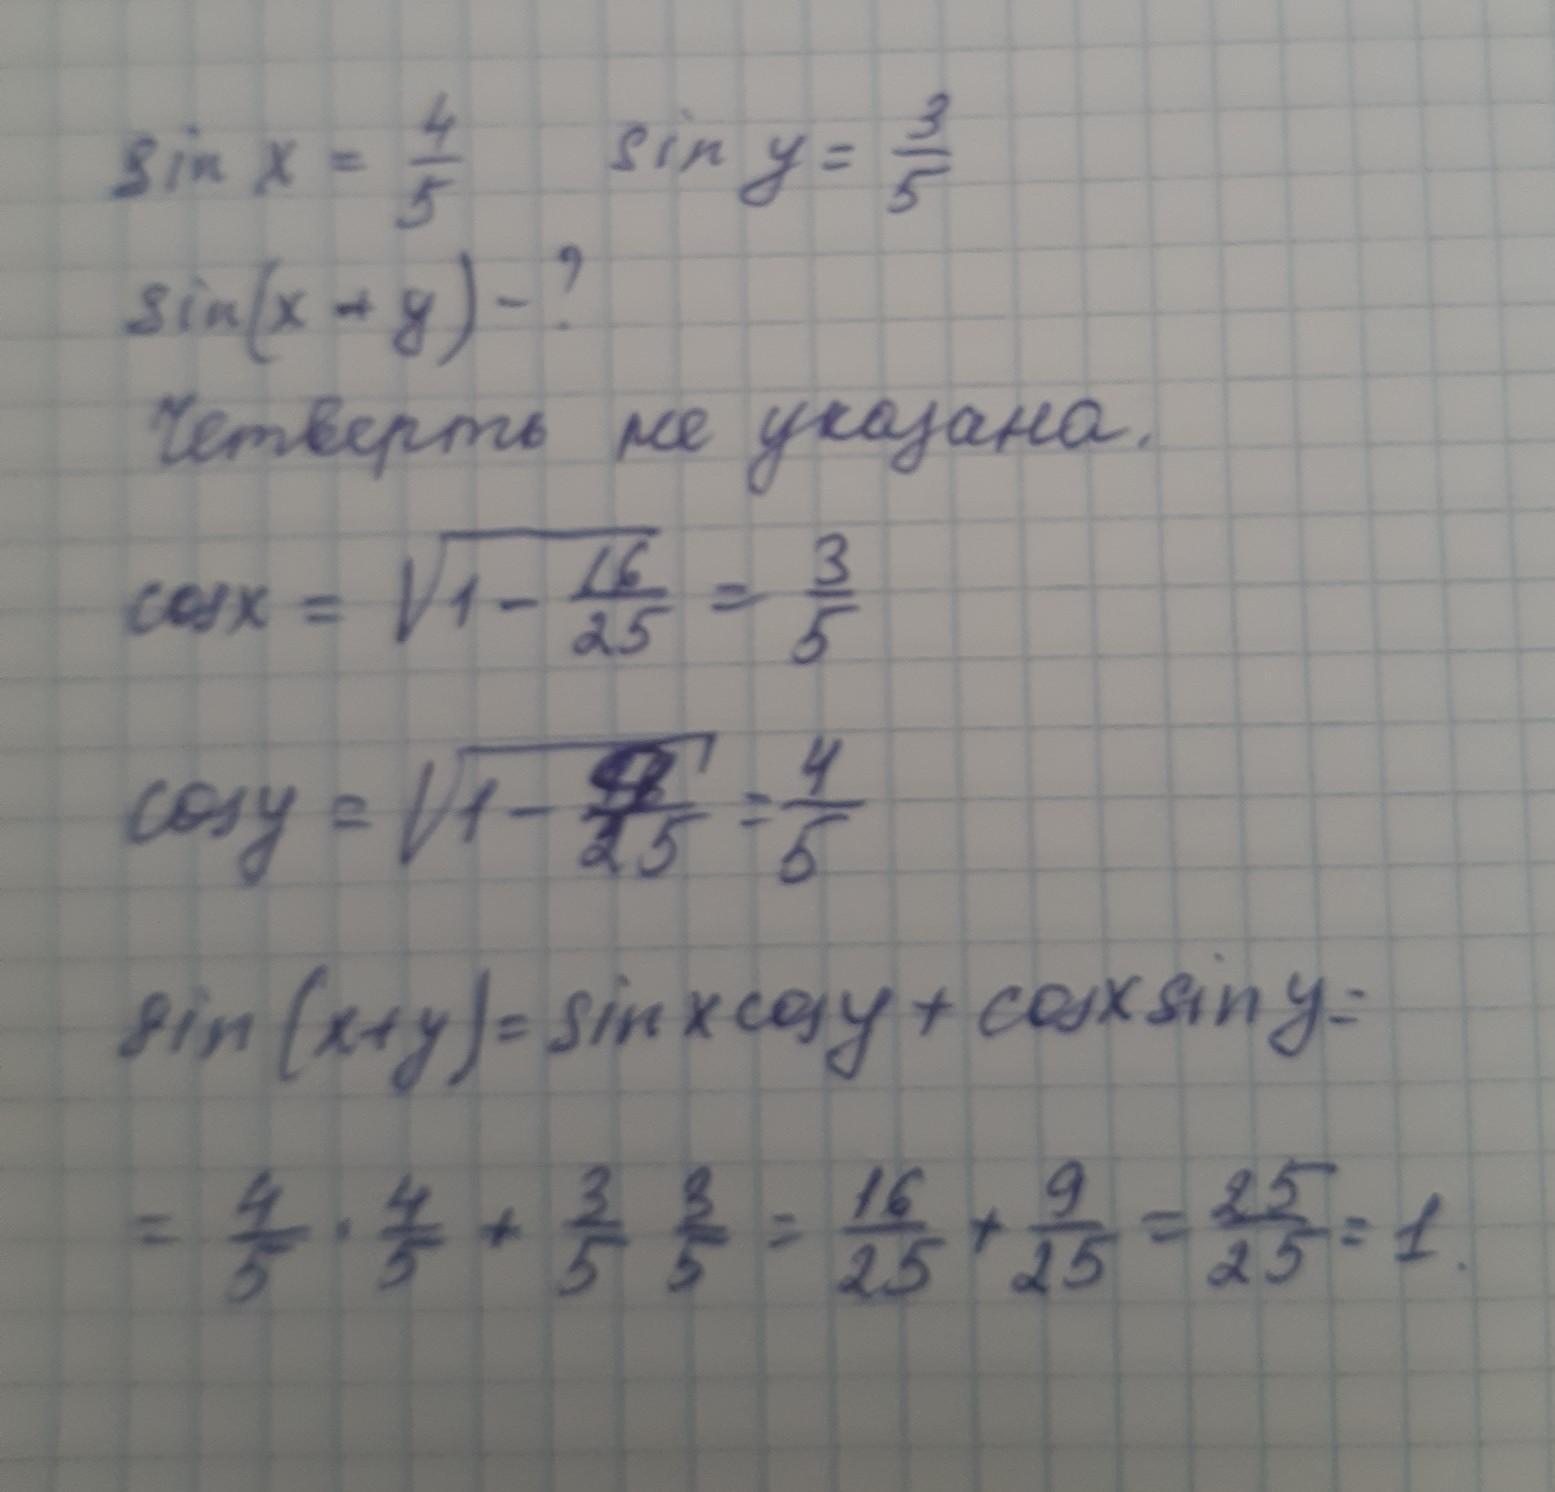 sin x = 4/5 sin y = 3/5
sin(x + y) - ?
Четверть не указана.
cosx = √1 - 16/25 = 3/5
cosy = √1 - 9/25 = 4/5
sin (x+y) = sin x cosy + cosx sin y =
= 4/5 · 4/5 + 3/5 3/5 = 16/25 + 9/25 = 25/25 = 1.